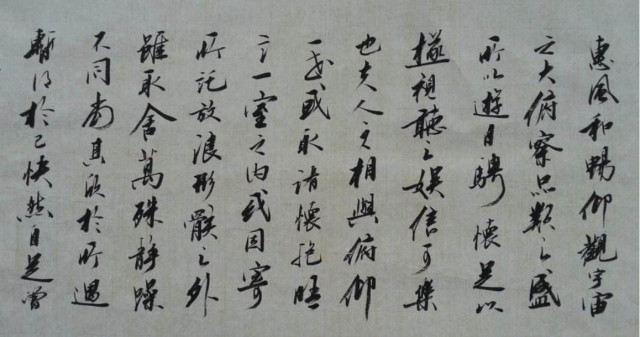 惠風和暢仰觀宇宙
之大俯察品類之盛
所以遊目騁懷足以
極視聽之娛信可樂
也夫人之相與俯仰
一世或取諸懷抱晤
言一室之內或因寄
所託放浪形骸之外
雖取舍萬殊靜躁
不同當其欣於所遇
暫得於己快然自足曾